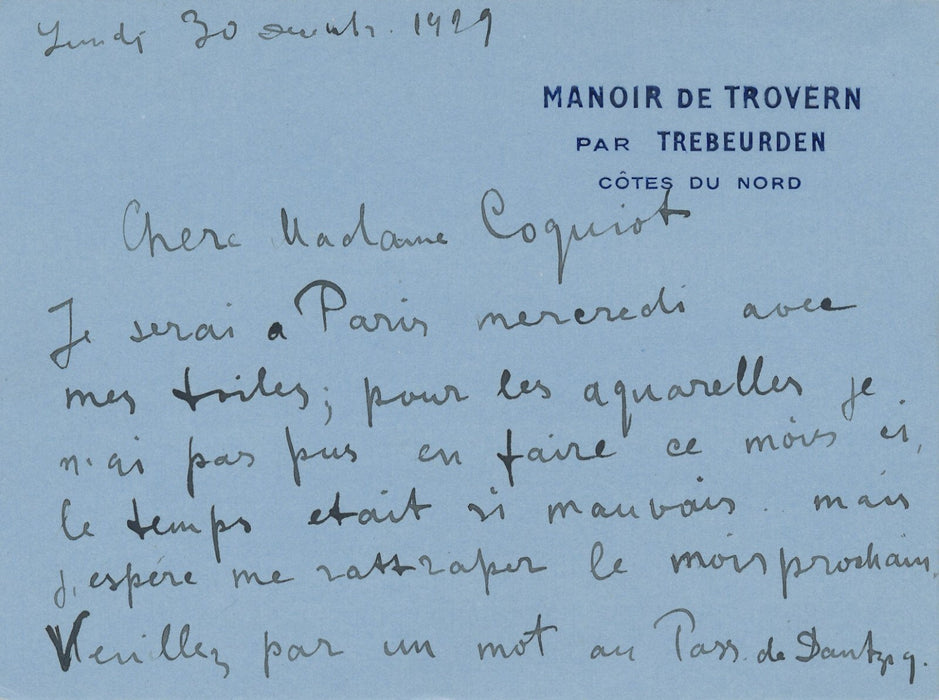 Lundi 30 decembr. 1929
MANOIR DE TROVERN
PAR TREBEURDEN
CÔTES DU NORD
Chere Madame Coquiot
Je serai a Paris mercredi avec
mes toiles; pour les aquarelles je
n'ai pas pus en faire ce mois ci,
le temps etait si mauvais. mais
j'espére me rattraper le mois prochain.
Veuillez par un mot au Pass. de Dantzig.